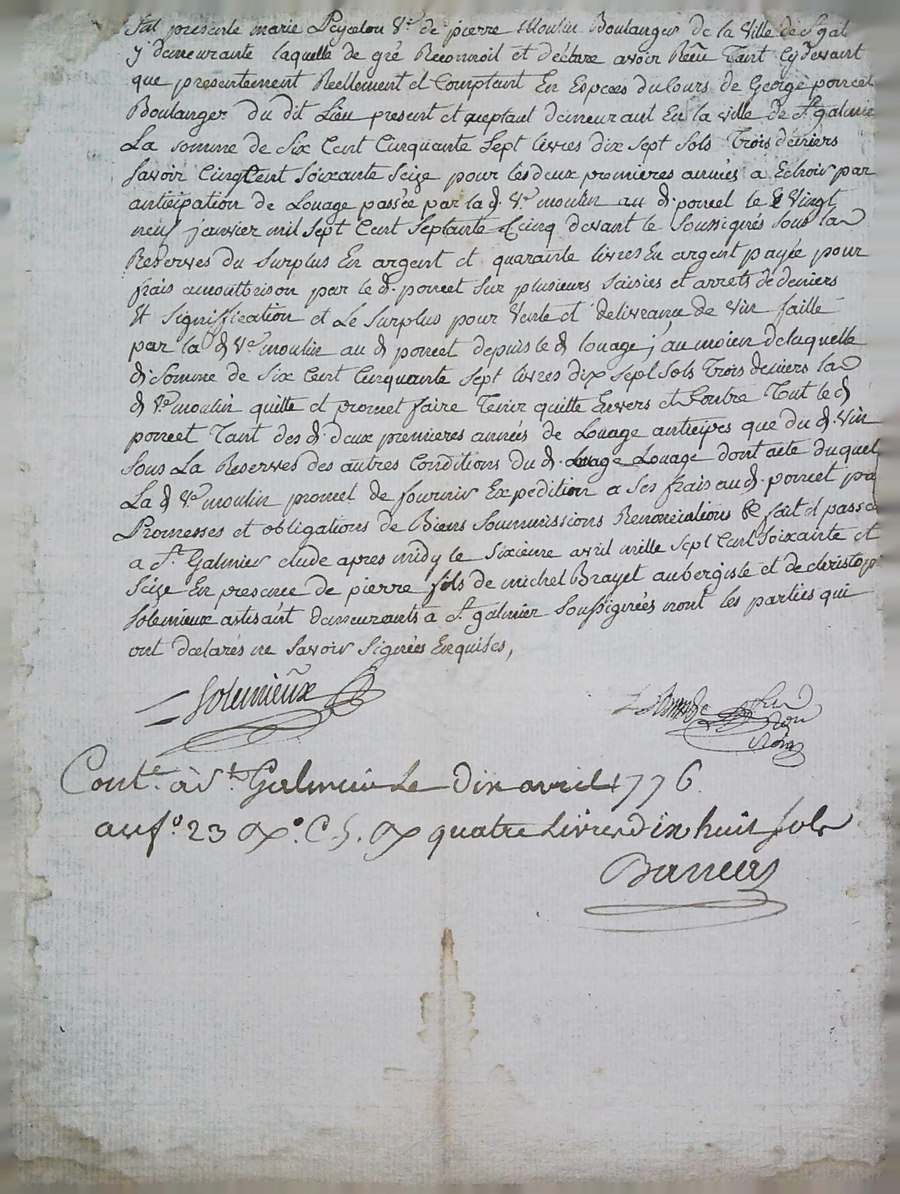 fut presente marie Peycelon Ve de pierre Moulin Boulanger de la Ville de St gal
y demeurante laquelle de gré Reconnoit et déclare avoir Reçu Tant cydevant
que presentement Reellement et Comptant En Especes du Cours de George poncet
Boulanger du dit Lieu present et aceptant demeurant En la ville de St galmier
La somme de Six Cent Cinquante Sept livres dix sept Sols Trois deniers
savoir Cinq Cent Soixante Seize pour les deux premieres années a Echoir par
anticipation de Louage passée par la d. Ve moulin au d. poncet le Vingt
neuf janvier mil Sept Cent Septante Cinq devant le Soussignés Sous la
Reserves du Surplus En argent et quarante livres En argent payée pour
frais par le d. poncet Sur plusieurs Saisies et arrets de deniers
Et Signification et Le Surplus pour Vente et delivrance de Vin faitte
par la d Ve moulin au d poncet depuis le d louage ; au moien de laquelle
d. Somme de Six Cent Cinquante Sept livres dix Sept Sols Trois deniers la
d Ve moulin quitte et promet faire Tenir quitte Envers et Contre Tout le d
poncet Tant des d. deux premieres années de Louage anticipés que du d. Vin
Sous La Reserves des autres Conditions du d. Louage dont acte duquel
La d Ve moulin promet de fournir Expedition a Ses frais au d. poncet par
Promesses et obligations de Biens Soummissions Renonciations &c fait et passé
a St. Galmier Etude apres midy le Sixieme avril mille Sept Cent Soixante et
Seize En presence de pierre fils de michel Brayet aubergiste et de christop
Solemieux artisant demeurants a St galmier Soussignées non les parties qui
ont declarés ne Savoir Signées Enquises,
Solemieux
Cont.e à St Galmier Le dix avril 1776
au fo 23 Ro. C. 5. R quatre livres dix huit sols